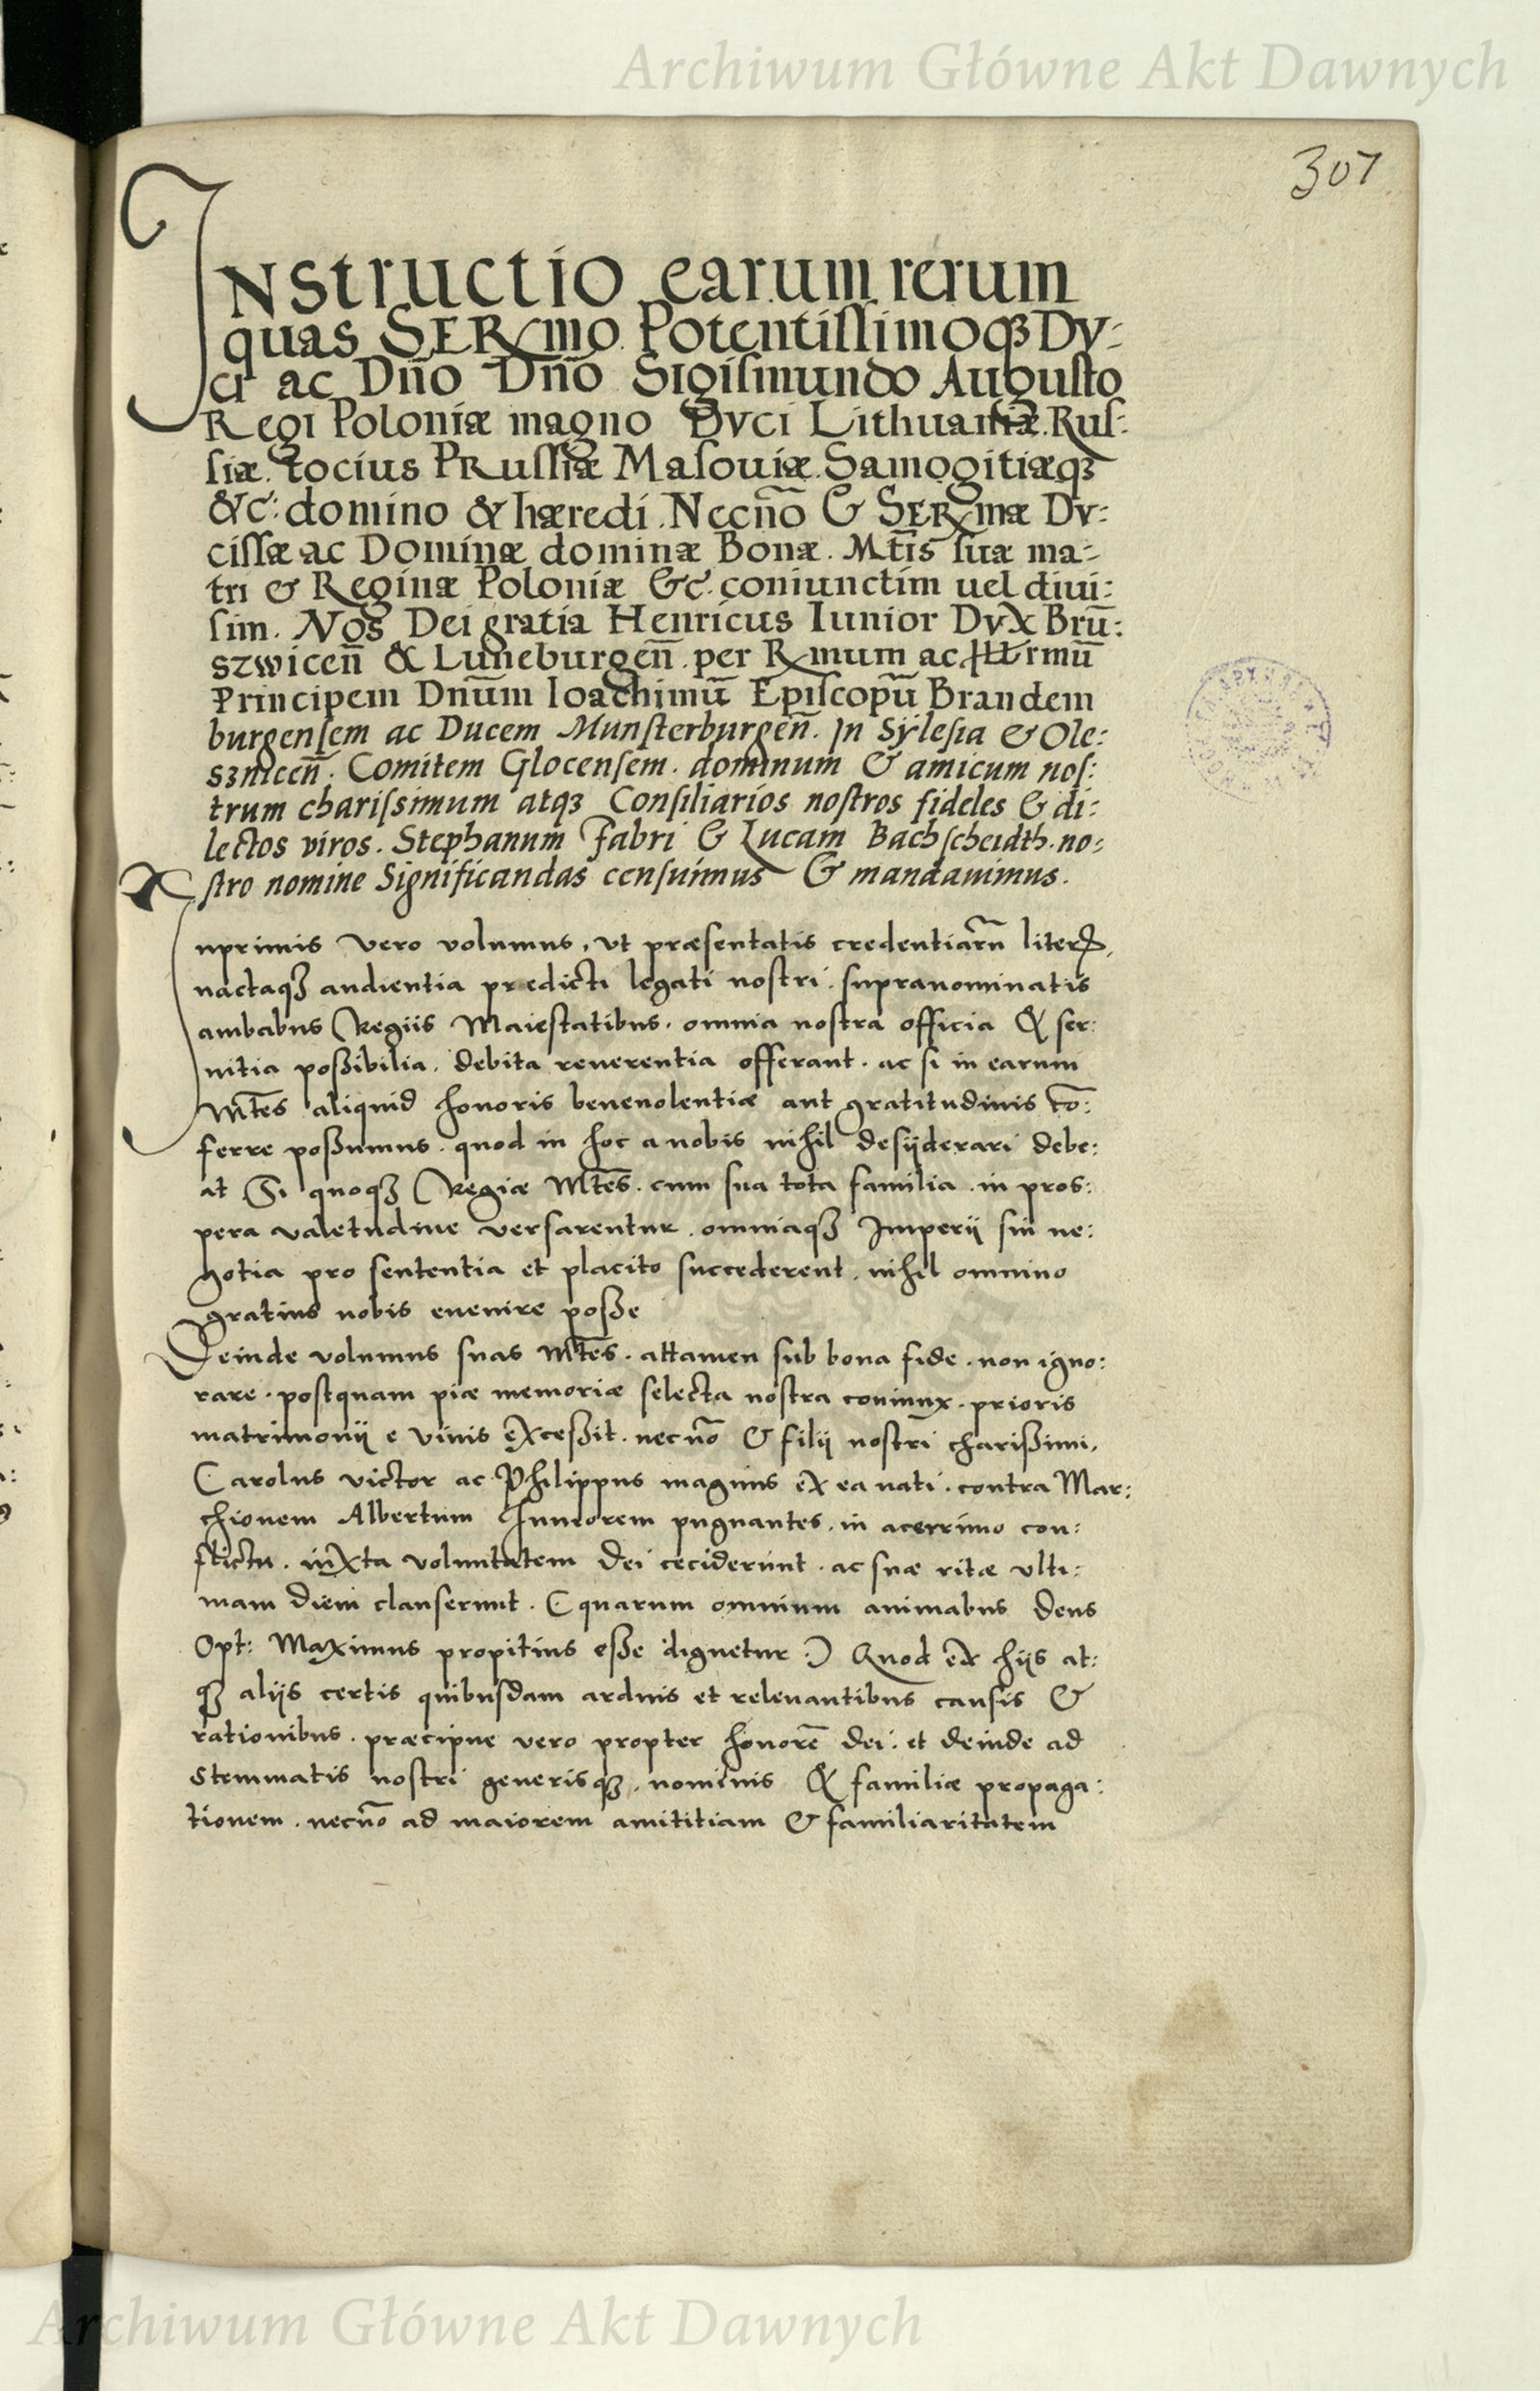 Archiwum Główne Akt Dawnych
307
INstructio earum rerum
quas SERmo Potentissimoqꝫ Dv:
ci ac Dn̄o Dn̄o Sigismundo Augusto
Regi Poloniæ magno Dvci Lithuaniæ. Rus:
siæ. tocius PRussiæ Masouiæ. Samogitiæqꝫ
&c: domino & hæredi. Necnō & SERmæ Dv:
cissæ ac Dominæ dominæ Bonæ. Mt̄is suæ ma=
tri & Reginæ Poloniæ &c. coniunctim uel diui:
sim. Nos Dei gratia Henricus Iunior DvX Brū:
szwicen̄ & Luneburgen̄. per Rmum ac Illrmū
Principem Dnūm Ioachimū Episcopū Brandem
burgensem ac Ducem Munsterburgen̄. In Sÿlesia & Ole:
sznicen̄. Comitem Glocensem. dominum & amicum nos:
trum charissimum atqꝫ Consiliarios nostros fideles & di:
lectos viros. Stephanum Fabri & Lucam Bachscheidth. no:
stro nomine Significandas censuimus & mandauimus.
Inprimis vero volumus, vt præsentatis credentiarū literꝝ,
nactaqꝫ audientia predicti legati nostri. supranominatis
ambabus Regiis Maiestatibus. omnia nostra officia & ser:
uitia possibilia. debita reuerentia offerant. ac si in earum
Mt̄es aliquid honoris beneuolentiæ aut gratitudinis cō:
ferre possumus. quod in hoc a nobis nihil desÿderari debe:
at Si quoqꝫ Regiæ Mt̄es. cum sua tota familia. in pros:
pera valetudine versarentur. omniaqꝫ Imperÿ sui ne:
gotia pro sententia et placito succederent. nihil omnino
gratius nobis euenire posse
Deinde volumus suas Mt̄es. attamen sub bona fide. non igno:
rare. postquam piæ memoriæ selecta nostra coniunx. prioris
matrimonÿ e viuis excessit. necnō & filÿ nostri charissimi,
Carolus victor ac Philippus magnus ex ea nati. contra Mar:
chionem Albertum Iuniorem pugnantes. in acerrimo con:
flictu. iuxta voluntatem Dei ceciderunt. ac suæ vitæ vlti:
mam diem clauserunt. (quarum omnium animabus Deus
Opt: Maximus propitius esse dignetur:) Quod ex hÿs at:
qꝫ alÿs certis quibusdam arduis et releuantibus causis &
rationibus. præcipue vero propter honorē dei. et deinde ad
stemmatis nostri generisqꝫ. nominis & familiæ propaga:
tionem. necnō ad maiorem amititiam & familiaritatem
Archiwum Główne Akt Dawnych